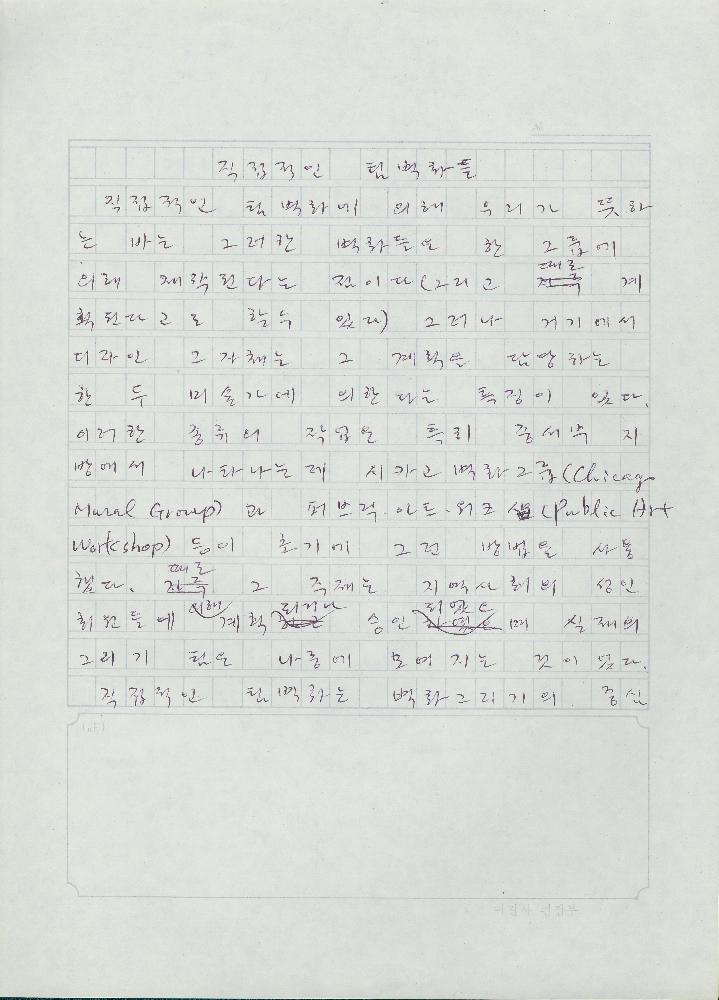 No.
직접적인 팀벽화들
직접적인 팀벽화에 의해 우리가 뜻하
는 바는 그러한 벽화들은 한 그룹에
때로
의해 제작된다는 점이다(그리고 계
획된다고도 할수 있다) 그러나 거기에서
디자인 그 자체는 그 계획을 담당하는
한 두 미술가에 의한다는 특징이 있다.
이러한 종류의 작업은 특히 중서부 지
방에서 나타나는데 시카고 벽화그룹(Chicago
Mural Group)과 퍼브릭·아트·워크샵(Public Art
Workshop) 등이 초기에 그런 방법을 사용
때로
했다. 그 주제는 지역사회의 성인
의해 되거나 되었으
회원들에 계획 승인 며 실제의
그리기 팀은 나중에 모여지는 것이었다.
직접적인 팀벽화는 벽화그리기의 중심